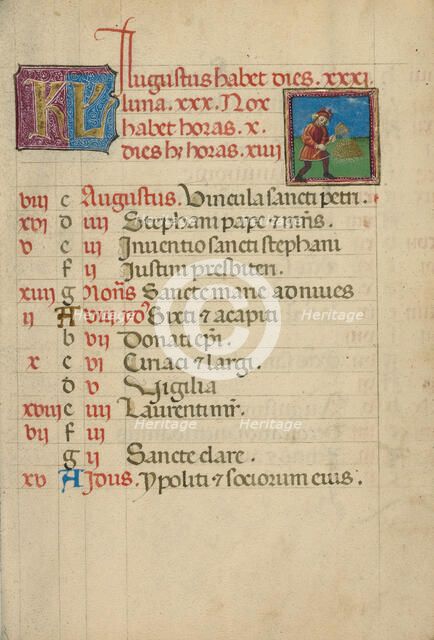 KL Augustus habet dies. xxxi.
luna. xxx. Nox
habet horas. x.
dies hꝫ horas. xiiii
viii c Augustus. Vincula sancti petri.
xvi d iiii Stephani pape ⁊ mr̄is.
v e iii Inventio sancti stephani
f ii Justini presbiteri.
xiii g Noñs Sancte marie ad nives
ii A viii idꝰ Sixti ⁊ acapiti
b vii Donati ep̄i.
x c vi Ciriaci ⁊ largi.
d v Vigilia
xviii e iiii Laurenti mr̄.
vii f iii
g ii Sancte clare.
xv A Idus. Ypoliti ⁊ sociorum eius.
Heritage
Heritage
Heritage
Heritage
Heritage
Heritage